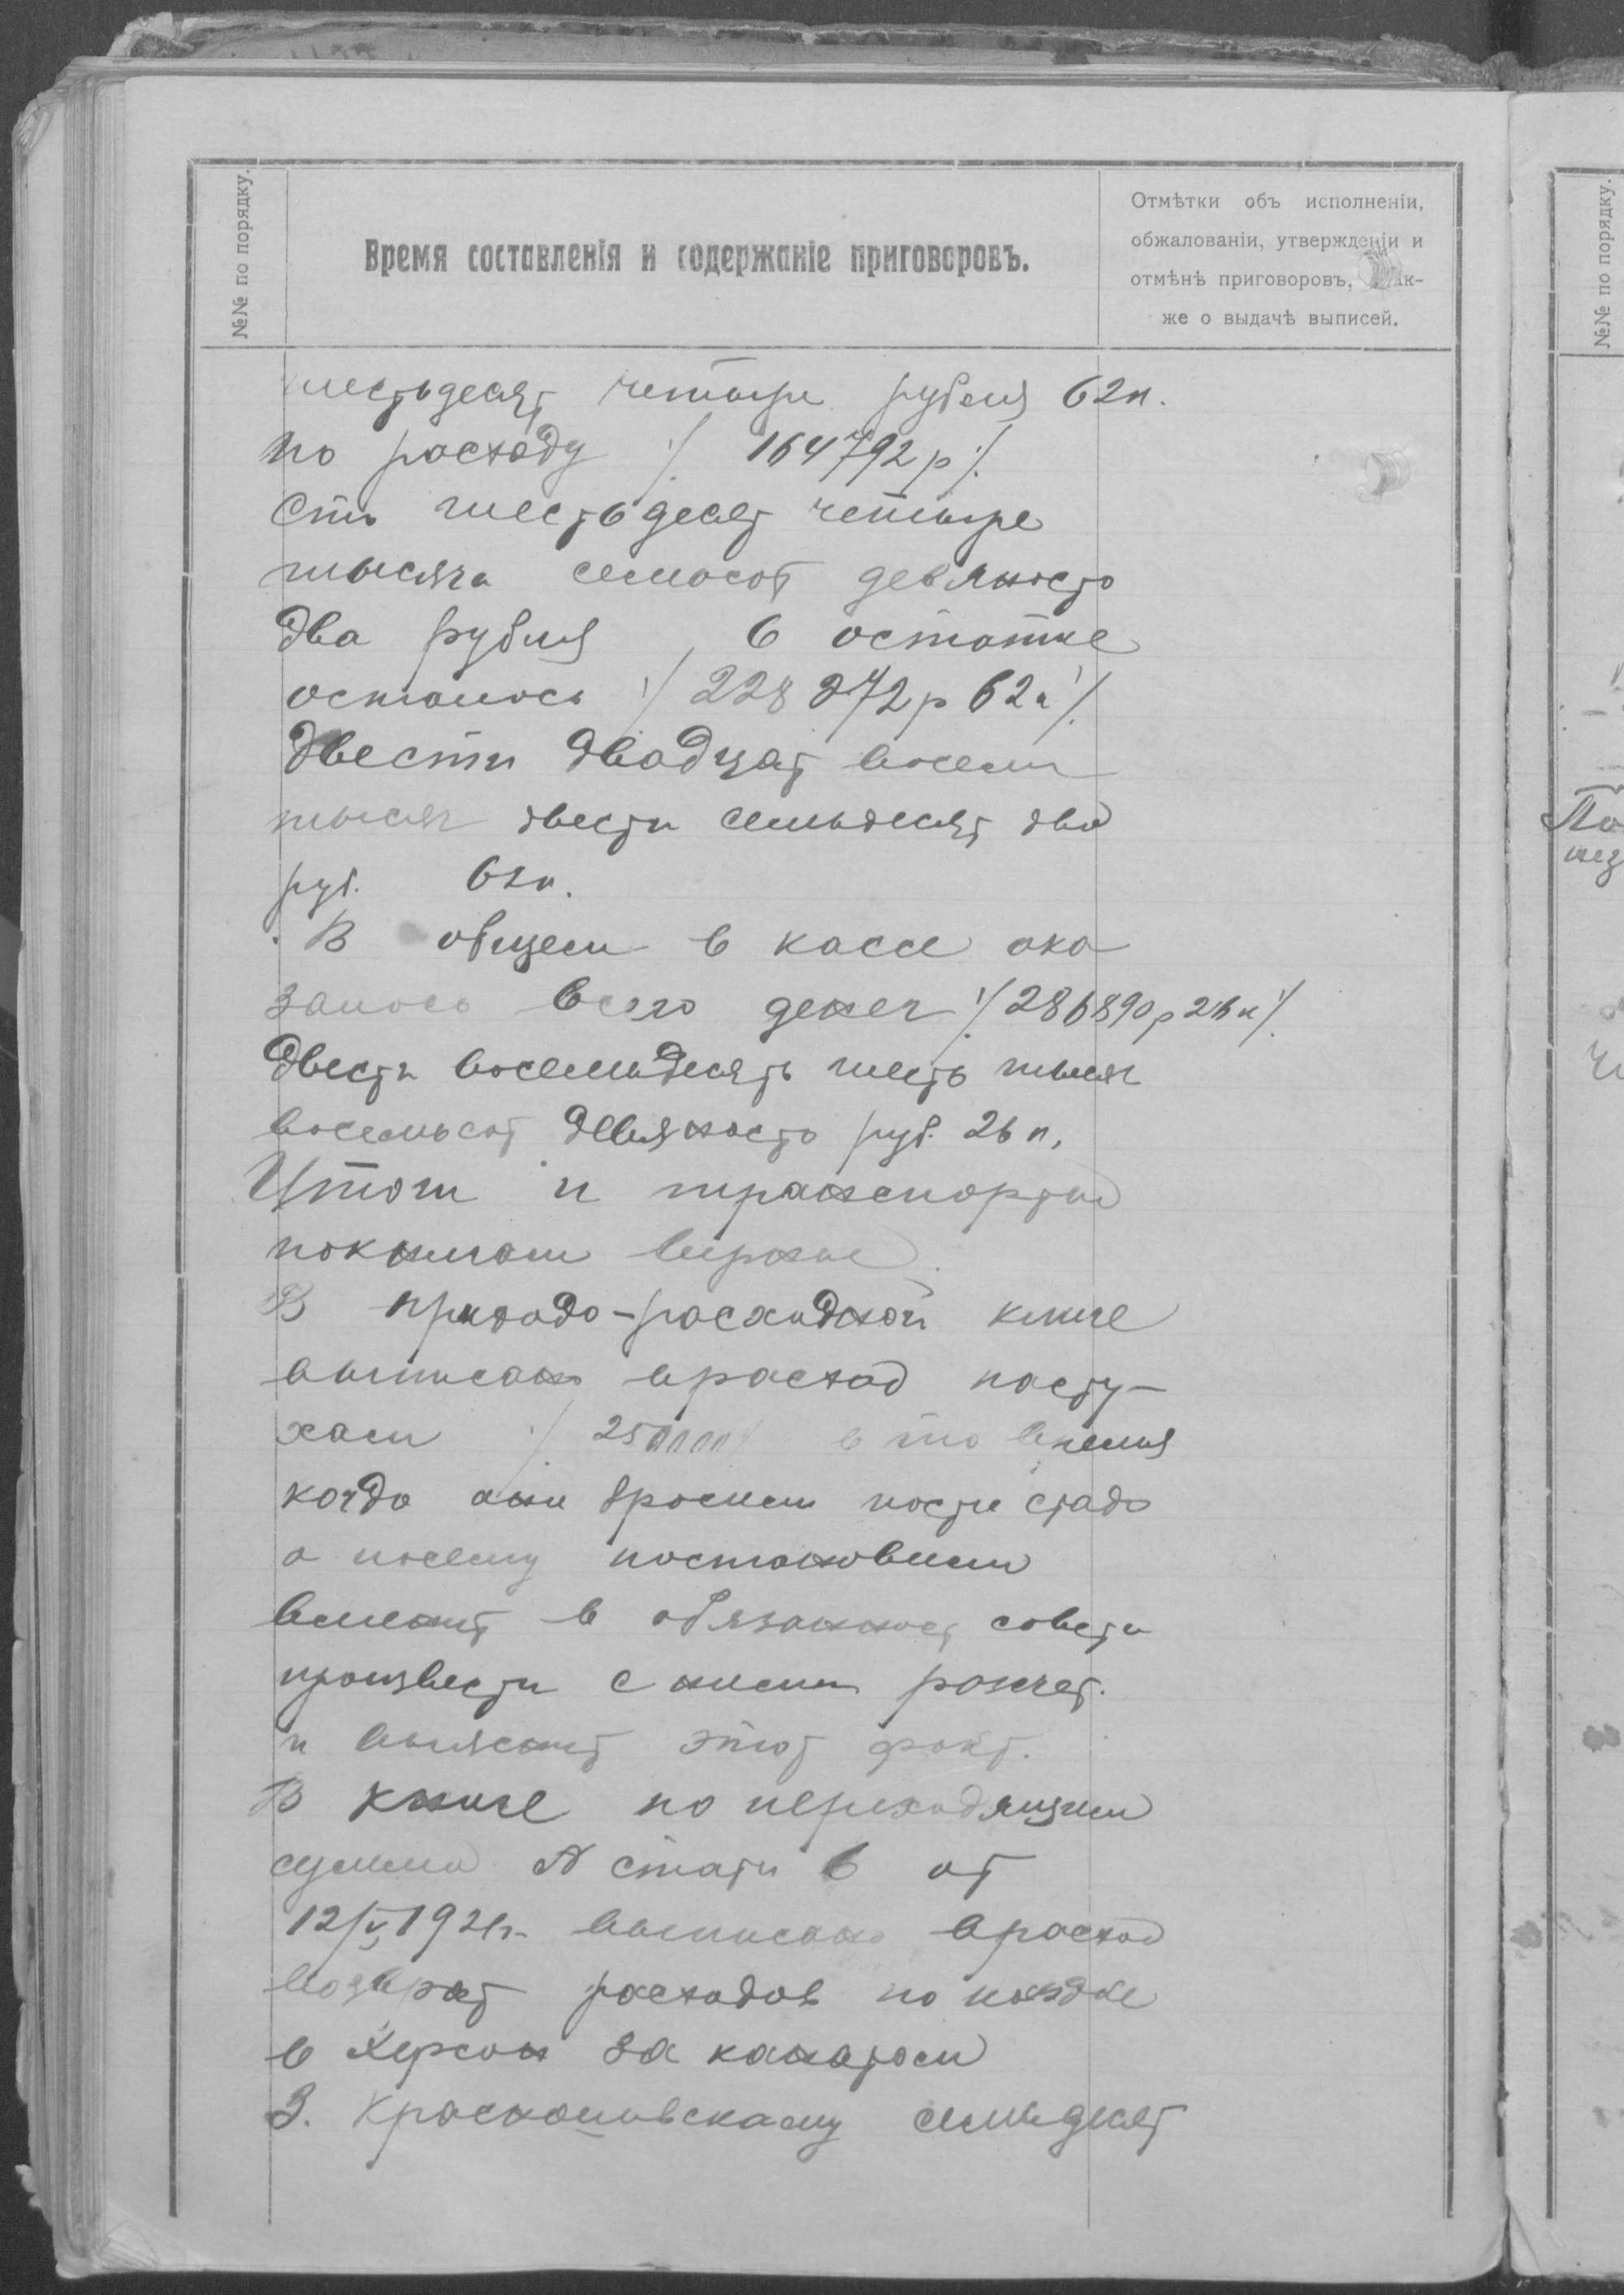 №№ по порядку.
Время составленія и содержаніе приговоровъ.
Отмѣтки объ исполненіи,
обжалованіи, утвержденіи и
отмѣнѣ приговоровъ, так-
же о выдачѣ выписей.
шестьдесят четыри рубля 62к.
по расходу ⁒ 164792р ⁒
Сто шестьдесят четыре
тысяча семьсот девяносто
два рубля, в остатке
осталось ⁒ 228272р 62к ⁒
двести двадцат восем
тысяч двести семьдесят два
руб. 62к.
В общем в кассе ока
залось всего денег ⁒ 286890р 26к ⁒
Двести восемьдесять шесть тысяч
восемьсот девяносто руб. 26к.
Итоги и транспорты
по книгам верные.
В приходо-расходной книге
выписано врасход пасту-
хам ⁒ 25000 в то время
когда они бросили пасти стадо
а посему постановили
вменит в обязанност совета
произвести с ними расчет.
и выяснит этот факт.
В книге по переходящим
суммам стати 6 от
12/V 1921г. выписано врасход
возврат расходов по поездке
в Херсон за канатом
З. Краснопивскаму семьдесят
№№ по порядку.